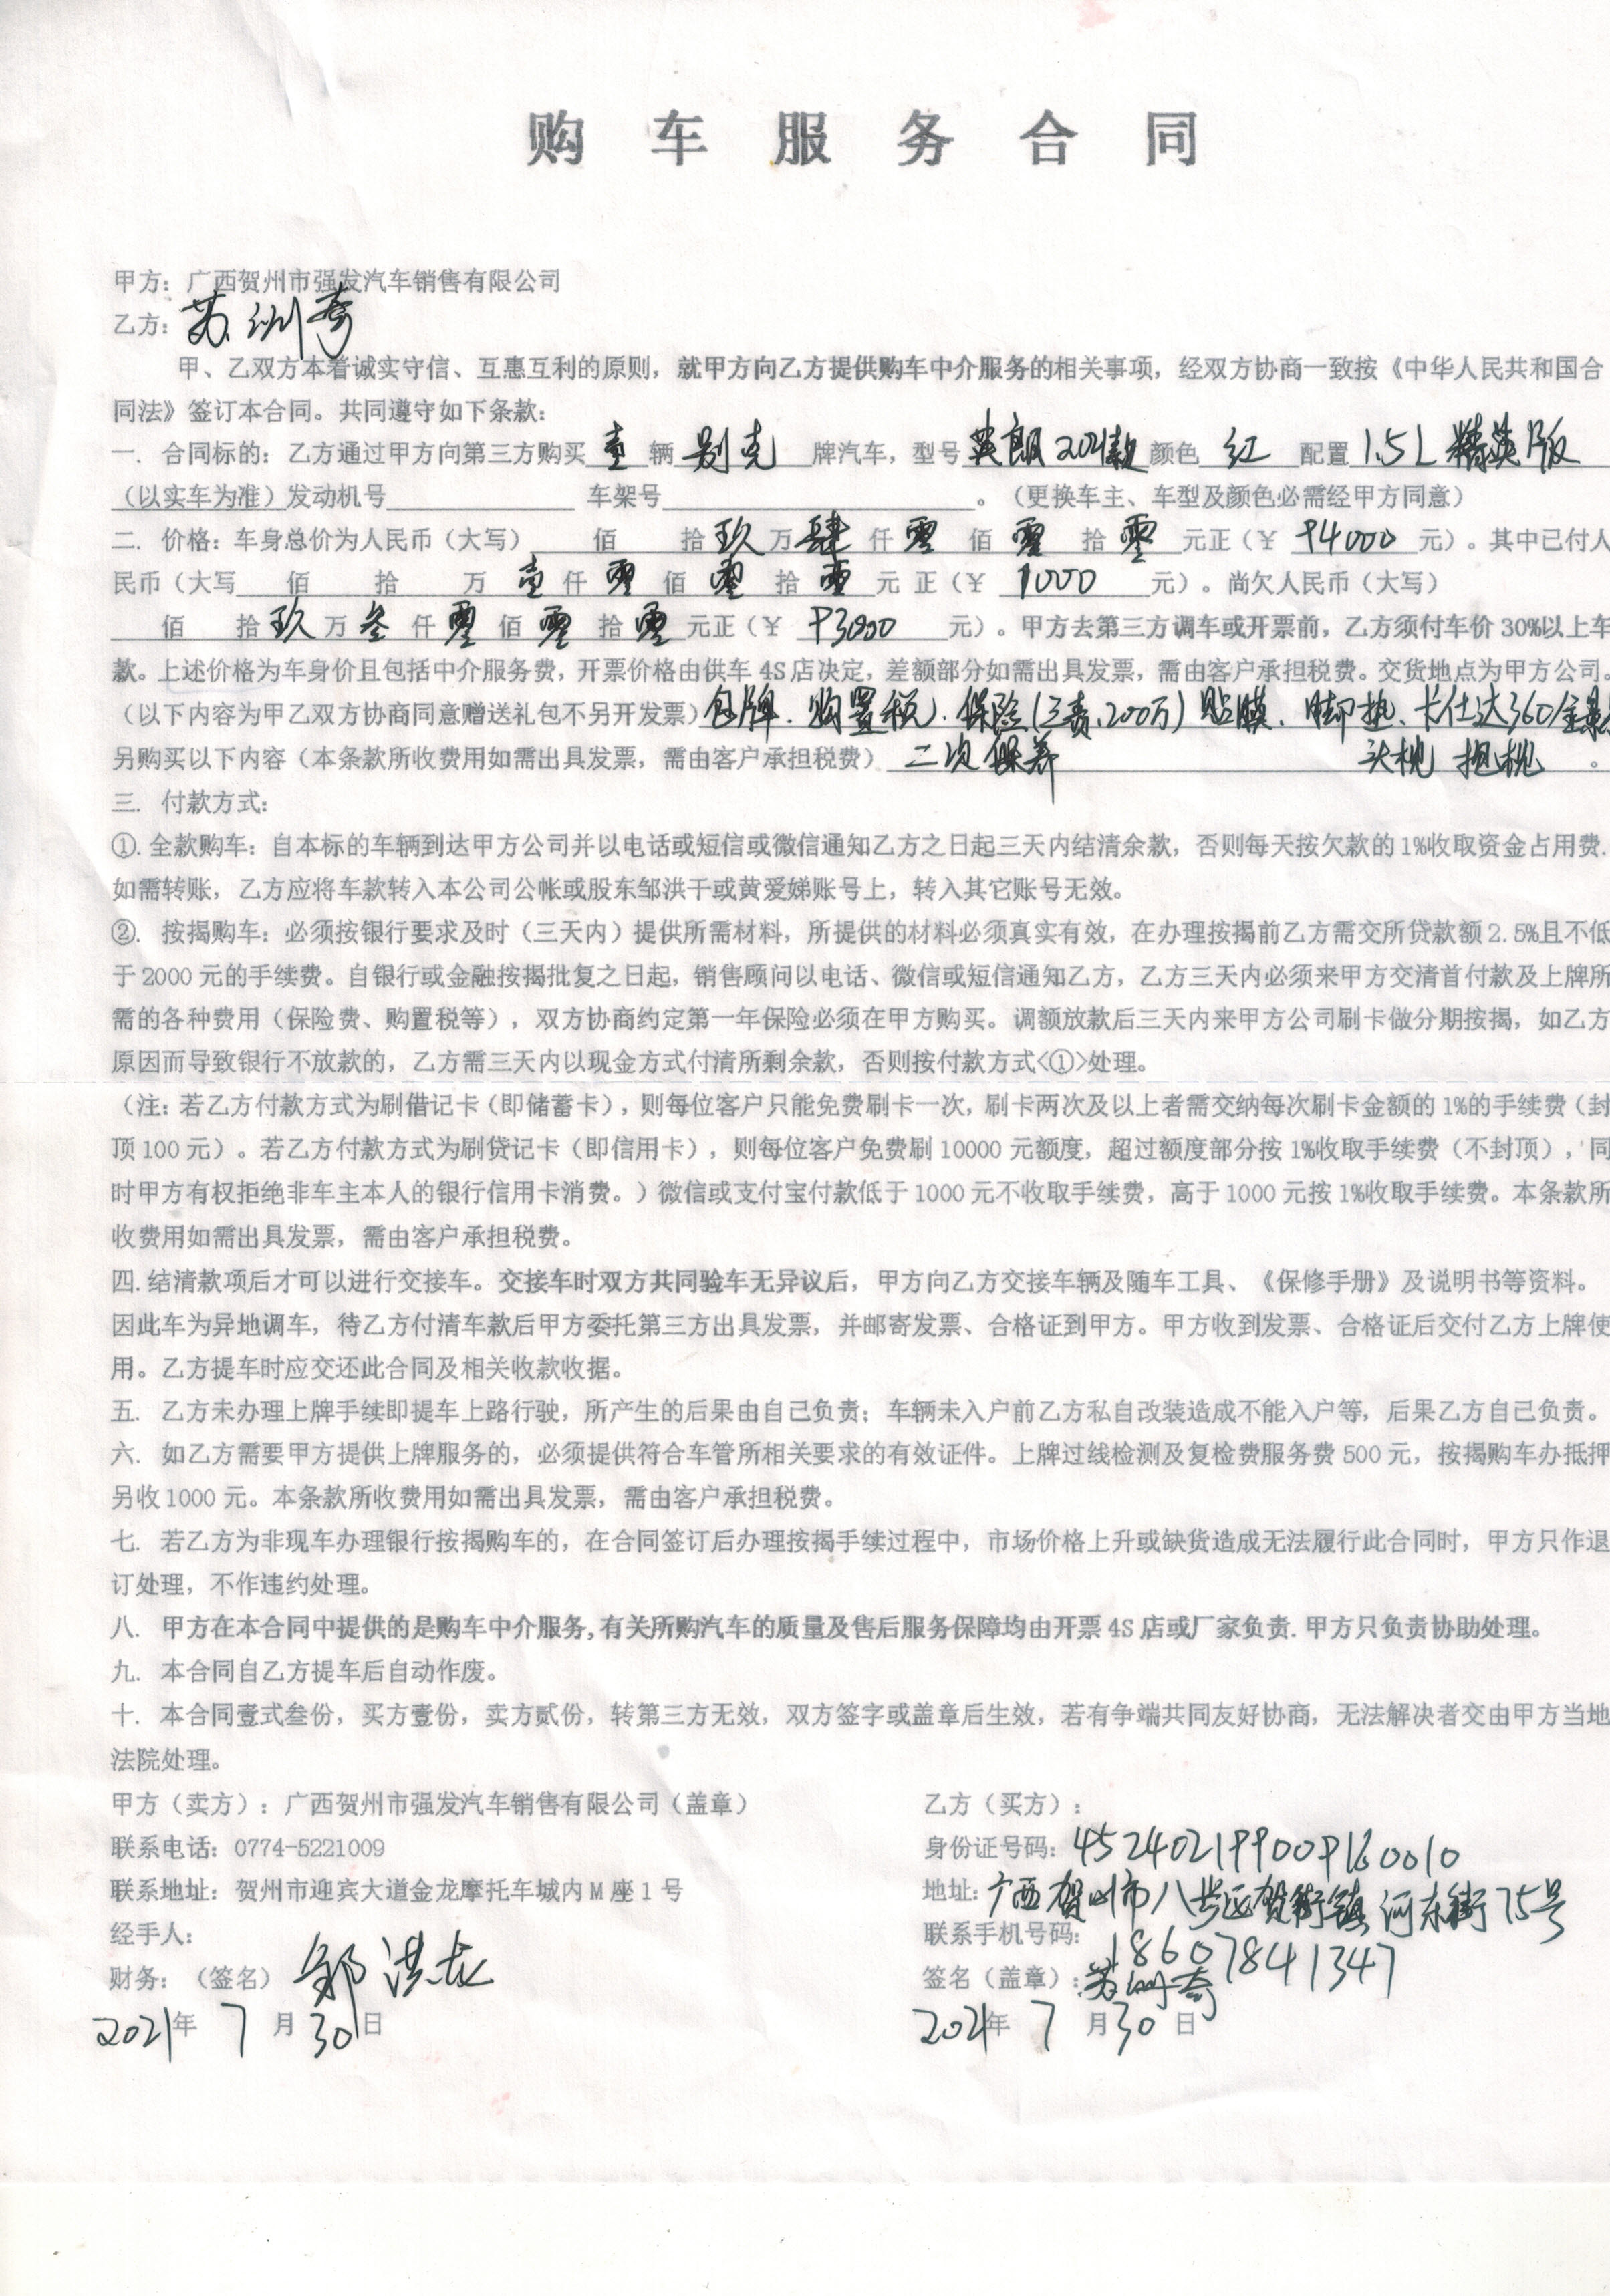 购车服务合同
甲方：广西贺州市强发汽车销售有限公司
乙方：苏
甲、乙双方本着诚实守信、互惠互利的原则，就甲方向乙方提供购车中介服务的相关事项，经双方协商一致按《中华人民共和国合
同法》签订本合同。共同遵守如下条款：
一. 合同标的：乙方通过甲方向第三方购买 壹 辆 别克 牌汽车，型号 英朗2021款 颜色 红 配置 1.5L 精英版
（以实车为准）发动机号 车架号 。（更换车主、车型及颜色必需经甲方同意）
二. 价格：车身总价为人民币（大写） 佰 拾 玖 万 肆 仟 零 佰 零 拾 零 元正（¥ 94000 元）。其中已付人
民币（大写 佰 拾 万 壹 仟 零 佰 零 拾 零 元 正（¥ 1000 元）。尚欠人民币（大写）
佰 拾 玖 万 叁 仟 零 佰 零 拾 零 元正（¥ 93000 元）。甲方去第三方调车或开票前，乙方须付车价 30%以上车
款。上述价格为车身价且包括中介服务费，开票价格由供车 4S 店决定，差额部分如需出具发票，需由客户承担税费。交货地点为甲方公司。
（以下内容为甲乙双方协商同意赠送礼包不另开发票）包牌、购置税、保险（三责、200万）贴膜、脚垫、卡仕达360全景
另购买以下内容（本条款所收费用如需出具发票，需由客户承担税费） 二次保养 头枕 抱枕 。
三. 付款方式：
①. 全款购车：自本标的车辆到达甲方公司并以电话或短信或微信通知乙方之日起三天内结清余款，否则每天按欠款的 1%收取资金占用费.
如需转账，乙方应将车款转入本公司公帐或股东邹洪干或黄爱娣账号上，转入其它账号无效。
②. 按揭购车：必须按银行要求及时（三天内）提供所需材料，所提供的材料必须真实有效，在办理按揭前乙方需交所贷款额 2.5%且不低
于 2000 元的手续费。自银行或金融按揭批复之日起，销售顾问以电话、微信或短信通知乙方，乙方三天内必须来甲方交清首付款及上牌所
需的各种费用（保险费、购置税等），双方协商约定第一年保险必须在甲方购买。调额放款后三天内来甲方公司刷卡做分期按揭，如乙方
原因而导致银行不放款的，乙方需三天内以现金方式付清所剩余款，否则按付款方式<①>处理。
（注：若乙方付款方式为刷借记卡（即储蓄卡），则每位客户只能免费刷卡一次，刷卡两次及以上者需交纳每次刷卡金额的 1%的手续费（封
顶 100 元）。若乙方付款方式为刷贷记卡（即信用卡），则每位客户免费刷 10000 元额度，超过额度部分按 1%收取手续费（不封顶），同
时甲方有权拒绝非车主本人的银行信用卡消费。）微信或支付宝付款低于 1000 元不收取手续费，高于 1000 元按 1%收取手续费。本条款所
收费用如需出具发票，需由客户承担税费。
四. 结清款项后才可以进行交接车。交接车时双方共同验车无异议后，甲方向乙方交接车辆及随车工具、《保修手册》及说明书等资料。
因此车为异地调车，待乙方付清车款后甲方委托第三方出具发票，并邮寄发票、合格证到甲方。甲方收到发票、合格证后交付乙方上牌使
用。乙方提车时应交还此合同及相关收款收据。
五. 乙方未办理上牌手续即提车上路行驶，所产生的后果由自己负责；车辆未入户前乙方私自改装造成不能入户等，后果乙方自己负责。
六. 如乙方需要甲方提供上牌服务的，必须提供符合车管所相关要求的有效证件。上牌过线检测及复检费服务费 500 元，按揭购车办抵押
另收 1000 元。本条款所收费用如需出具发票，需由客户承担税费。
七. 若乙方为非现车办理银行按揭购车的，在合同签订后办理按揭手续过程中，市场价格上升或缺货造成无法履行此合同时，甲方只作退
订处理，不作违约处理。
八. 甲方在本合同中提供的是购车中介服务,有关所购汽车的质量及售后服务保障均由开票 4S 店或厂家负责. 甲方只负责协助处理。
九. 本合同自乙方提车后自动作废。
十. 本合同壹式叁份，买方壹份，卖方贰份，转第三方无效，双方签字或盖章后生效，若有争端共同友好协商，无法解决者交由甲方当地
法院处理。
甲方（卖方）：广西贺州市强发汽车销售有限公司（盖章） 乙方（买方）：
联系电话：0774-5221009 身份证号码：452402199009160010
联系地址：贺州市迎宾大道金龙摩托车城内 M 座 1 号 地址：广西贺州市八步区贺街镇河东街75号
经手人： 联系手机号码：18607841347
财务：（签名） 邹洪 签名（盖章）：苏
2021年 7 月 30 日 2021年 7 月 30 日